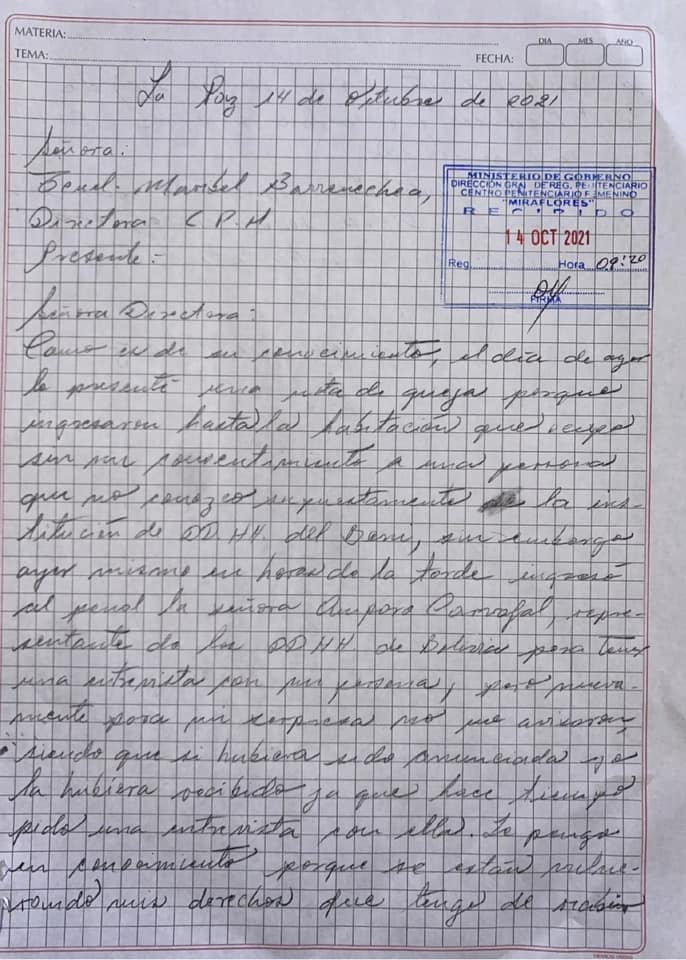 MATERIA:
TEMA:
FECHA:
DIA MES AÑO
La Paz 14 de Octubre de 2021
Señora:
Tcnel. Maribel Barrenechea,
Directora C P M
Presente.-
MINISTERIO DE GOBIERNO
DIRECCIÓN GRAL. DE REG. PENITENCIARIO
CENTRO PENITENCIARIO FEMENINO
"MIRAFLORES"
RECIBIDO
14 OCT 2021
Reg. Hora 09:20
FIRMA
Señora Directora:
Como es de su conocimiento, el día de ayer
le presenté una nota de queja porque
ingresaron hasta la habitación que ocupo
sin mi consentimiento a una persona
que no conozco supuestamente de la ins-
titución de DD.HH. del Beni, sin embargo
ayer mismo en horas de la tarde ingresó
al penal la señora Amparo Carvajal, repre-
sentante de los DD.HH. de Bolivia para tener
una entrevista con mi persona, pero nueva-
mente para mi sorpresa no me avisaron,
siendo que si hubiera sido anunciada yo
la hubiera recibido ya que hace tiempo
pido una entrevista con ella. Lo pongo
en conocimiento porque se están vulne-
rando mis derechos que tengo de recibir